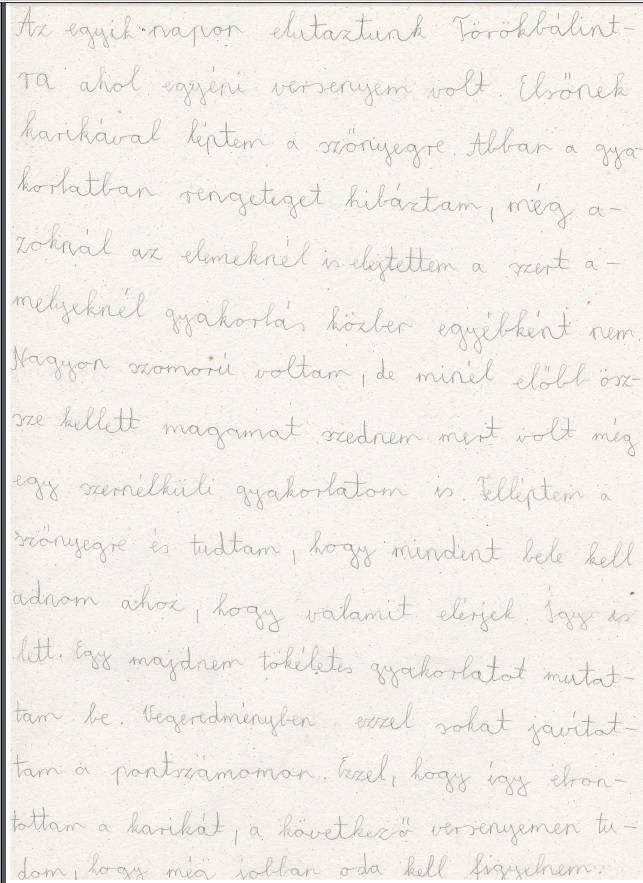 Az egyik napon elutaztunk Törökbálint-
ra ahol egyéni versenyem volt. Elsőnek
karikával léptem a szőnyegre. Abban a gya-
korlatban rengeteget hibáztam, még a-
zoknál az elemeknél is elejtettem a szert a-
melyeknél gyakorlás közben egyébként nem.
Nagyon szomorú voltam, de minél előbb ösz-
sze kellett magamat szednem mert volt még
egy szernélküli gyakorlatom is. Felléptem a
szőnyegre és tudtam, hogy mindent bele kell
adnom ahoz, hogy valamit elérjek. Így is
lett. Egy majdnem tökéletes gyakorlatot mutat-
tam be. Vegeredményben ezzel sokat javítat-
tam a pontszámomon. Ezzel, hogy így elron-
tottam a karikát, a következő versenyemen tu-
dom, hogy még jobban oda kell figyelnem.